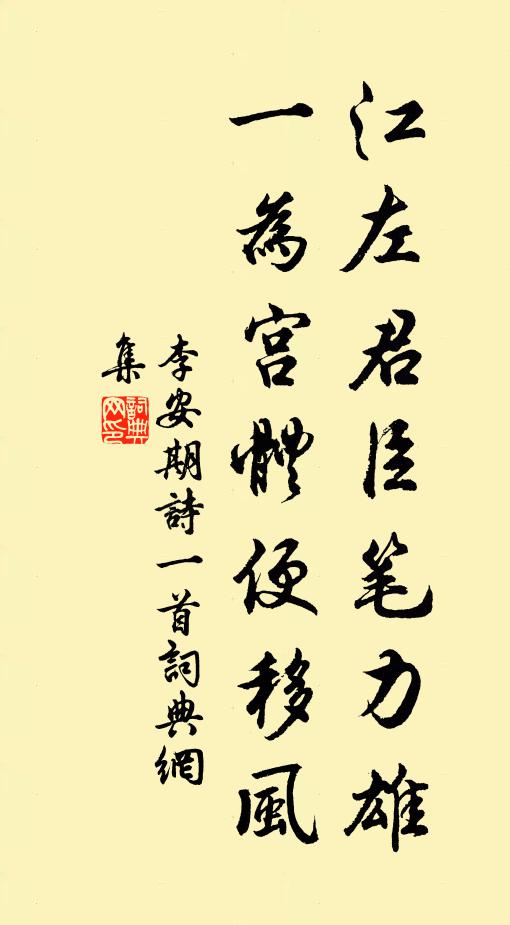 江左君臣笔力雄
一為宫體便移風
李安期詩一首詞典網
集
詞典
网印